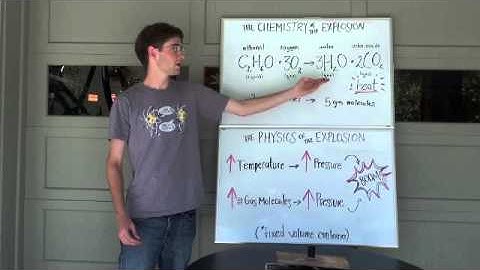 THE CHEMISTRY of the EXPLOSION
ethanol oxygen water carbon dioxide
C₂H₆O + 3O₂ → 3H₂O + 2CO₂
(liquid) (gas) (gas) (gas)
Heat
→ 5 gas molecules
THE PHYSICS OF THE EXPLOSION
↑ Temperature → ↑ Pressure
BOOM!
↑ # Gas Molecules → ↑ Pressure
(*fixed volume container)